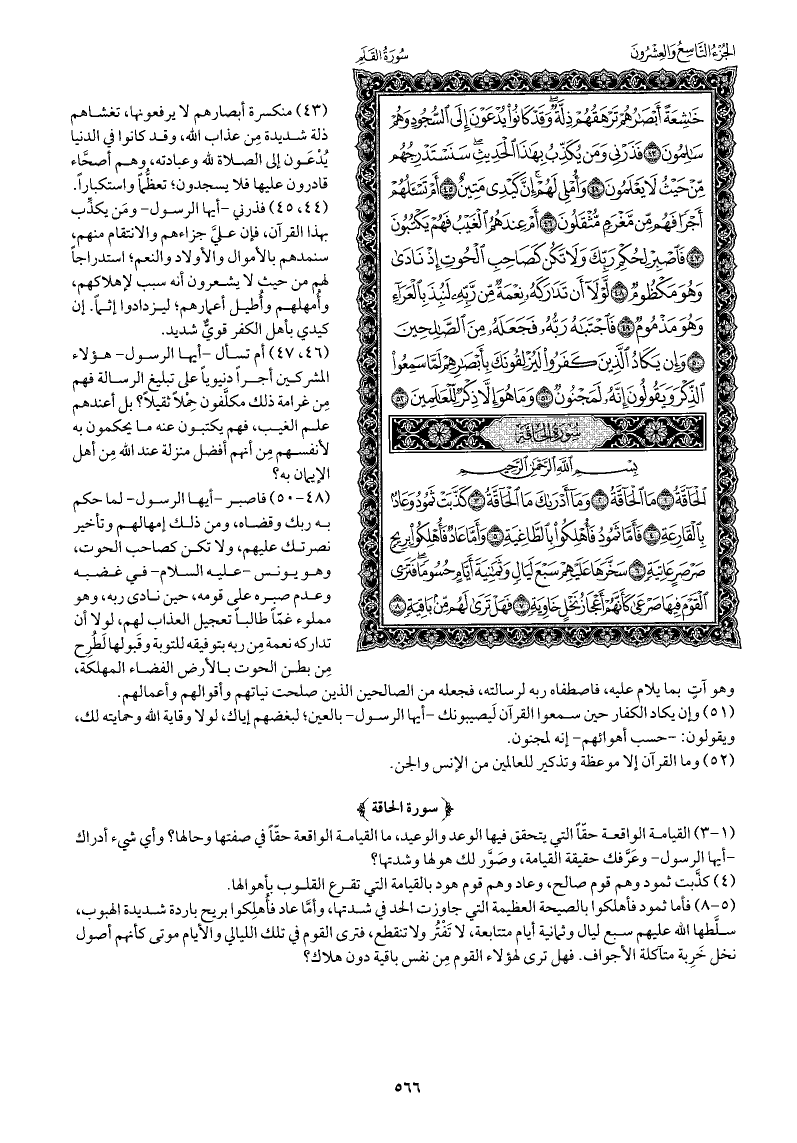 الجزء التاسع والعشرون
سورة القلم
خَٰشِعَةً أَبۡصَٰرُهُمۡ تَرۡهَقُهُمۡ ذِلَّةٞۖ وَقَدۡ كَانُواْ يُدۡعَوۡنَ إِلَى ٱلسُّجُودِ وَهُمۡ
سَٰلِمُونَ ٤٣ فَذَرۡنِي وَمَن يُكَذِّبُ بِهَٰذَا ٱلۡحَدِيثِۖ سَنَسۡتَدۡرِجُهُم
مِّنۡ حَيۡثُ لَا يَعۡلَمُونَ ٤٤ وَأُمۡلِي لَهُمۡۚ إِنَّ كَيۡدِي مَتِينٌ ٤٥ أَمۡ تَسۡـَٔلُهُمۡ
أَجۡرٗا فَهُم مِّن مَّغۡرَمٖ مُّثۡقَلُونَ ٤٦ أَمۡ عِندَهُمُ ٱلۡغَيۡبُ فَهُمۡ يَكۡتُبُونَ
٤٧ فَٱصۡبِرۡ لِحُكۡمِ رَبِّكَ وَلَا تَكُن كَصَاحِبِ ٱلۡحُوتِ إِذۡ نَادَىٰ
وَهُوَ مَكۡظُومٞ ٤٨ لَّوۡلَآ أَن تَدَٰرَكَهُۥ نِعۡمَةٞ مِّن رَّبِّهِۦ لَنُبِذَ بِٱلۡعَرَآءِ
وَهُوَ مَذۡمُومٞ ٤٩ فَٱجۡتَبَٰهُ رَبُّهُۥ فَجَعَلَهُۥ مِنَ ٱلصَّٰلِحِينَ
٥٠ وَإِن يَكَادُ ٱلَّذِينَ كَفَرُواْ لَيُزۡلِقُونَكَ بِأَبۡصَٰرِهِمۡ لَمَّا سَمِعُواْ
ٱلذِّكۡرَ وَيَقُولُونَ إِنَّهُۥ لَمَجۡنُونٞ ٥١ وَمَا هُوَ إِلَّا ذِكۡرٞ لِّلۡعَٰلَمِينَ ٥٢
سورة الحاقة
بِسۡمِ ٱللَّهِ ٱلرَّحۡمَٰنِ ٱلرَّحِيمِ
ٱلۡحَآقَّةُ ١ مَا ٱلۡحَآقَّةُ ٢ وَمَآ أَدۡرَىٰكَ مَا ٱلۡحَآقَّةُ ٣ كَذَّبَتۡ ثَمُودُ وَعَادُۢ
بِٱلۡقَارِعَةِ ٤ فَأَمَّا ثَمُودُ فَأُهۡلِكُواْ بِٱلطَّاغِيَةِ ٥ وَأَمَّا عَادٞ فَأُهۡلِكُواْ بِرِيحٖ
صَرۡصَرٍ عَاتِيَةٖ ٦ سَخَّرَهَا عَلَيۡهِمۡ سَبۡعَ لَيَالٖ وَثَمَٰنِيَةَ أَيَّامٍ حُسُومٗاۖ فَتَرَى
ٱلۡقَوۡمَ فِيهَا صَرۡعَىٰ كَأَنَّهُمۡ أَعۡجَازُ نَخۡلٍ خَاوِيَةٖ ٧ فَهَلۡ تَرَىٰ لَهُم مِّنۢ بَاقِيَةٖ ٨
(٤٣) منكسرة أبصارهم لا يرفعونها، تغشاهم
ذلة شديدة مِن عذاب الله، وقد كانوا في الدنيا
يُدْعَون إلى الصلاة لله وعبادته، وهم أصحَّاء
قادرون عليها فلا يسجدون؛ تعظُّماً واستكباراً.
(٤٤، ٤٥) فذرني -أيها الرسول- ومَن يكذِّب
بهذا القرآن، فإن عليَّ جزاءهم والانتقام منهم،
سنمدهم بالأموال والأولاد والنعم؛ استدراجاً
لهم من حيث لا يشعرون أنه سبب لإهلاكهم،
وأُمهلهم وأُطيل أعمارهم؛ ليزدادوا إثماً. إن
كيدي بأهل الكفر قويٌّ شديد.
(٤٦، ٤٧) أم تسأل -أيها الرسول- هؤلاء
المشركين أجراً دنيوياً على تبليغ الرسالة فهم
مِن غرامة ذلك مكلَّفون حِمْلاً ثقيلاً؟ بل أعندهم
علم الغيب، فهم يكتبون عنه ما يحكمون به
لأنفسهم مِن أنهم أفضل منزلة عند الله مِن أهل
الإيمان به؟
(٤٨-٥٠) فاصبر -أيها الرسول- لما حكم
به ربك وقضاه، ومن ذلك إمهالهم وتأخير
نصرتك عليهم، ولا تكن كصاحب الحوت،
وهو يونس -عليه السلام- في غضبه
وعدم صبره على قومه، حين نادى ربه، وهو
مملوء غمّاً طالباً تعجيل العذاب لهم، لولا أن
تداركه نعمة مِن ربه بتوفيقه للتوبة وقَبولها لَطُرِح
مِن بطن الحوت بالأرض الفضاء المهلكة،
وهو آتٍ بما يلام عليه، فاصطفاه ربه لرسالته، فجعله من الصالحين الذين صلحت نياتهم وأقوالهم وأعمالهم.
(٥١) وإن يكاد الكفار حين سمعوا القرآن لَيصيبونك -أيها الرسول- بالعين؛ لبغضهم إياك، لولا وقاية الله وحمايته لك،
ويقولون: -حسب أهوائهم- إنه لمجنون.
(٥٢) وما القرآن إلا موعظة وتذكير للعالمين من الإنس والجن.
﴿ سورة الحاقة ﴾
(١-٣) القيامة الواقعة حقّاً التي يتحقق فيها الوعد والوعيد، ما القيامة الواقعة حقّاً في صفتها وحالها؟ وأي شيء أدراك
-أيها الرسول- وعَرَّفك حقيقة القيامة، وصَوَّر لك هولها وشدتها؟
(٤) كذَّبت ثمود وهم قوم صالح، وعاد وهم قوم هود بالقيامة التي تقرع القلوب بأهوالها.
(٥-٨) فأما ثمود فأهلكوا بالصيحة العظيمة التي جاوزت الحد في شدتها، وأمَّا عاد فأُهلِكوا بريح باردة شديدة الهبوب،
سلَّطها الله عليهم سبع ليال وثمانية أيام متتابعة، لا تَفْتُر ولا تنقطع، فترى القوم في تلك الليالي والأيام موتى كأنهم أصول
نخل خَرِبة متآكلة الأجواف. فهل ترى لهؤلاء القوم مِن نفس باقية دون هلاك؟
٥٦٦